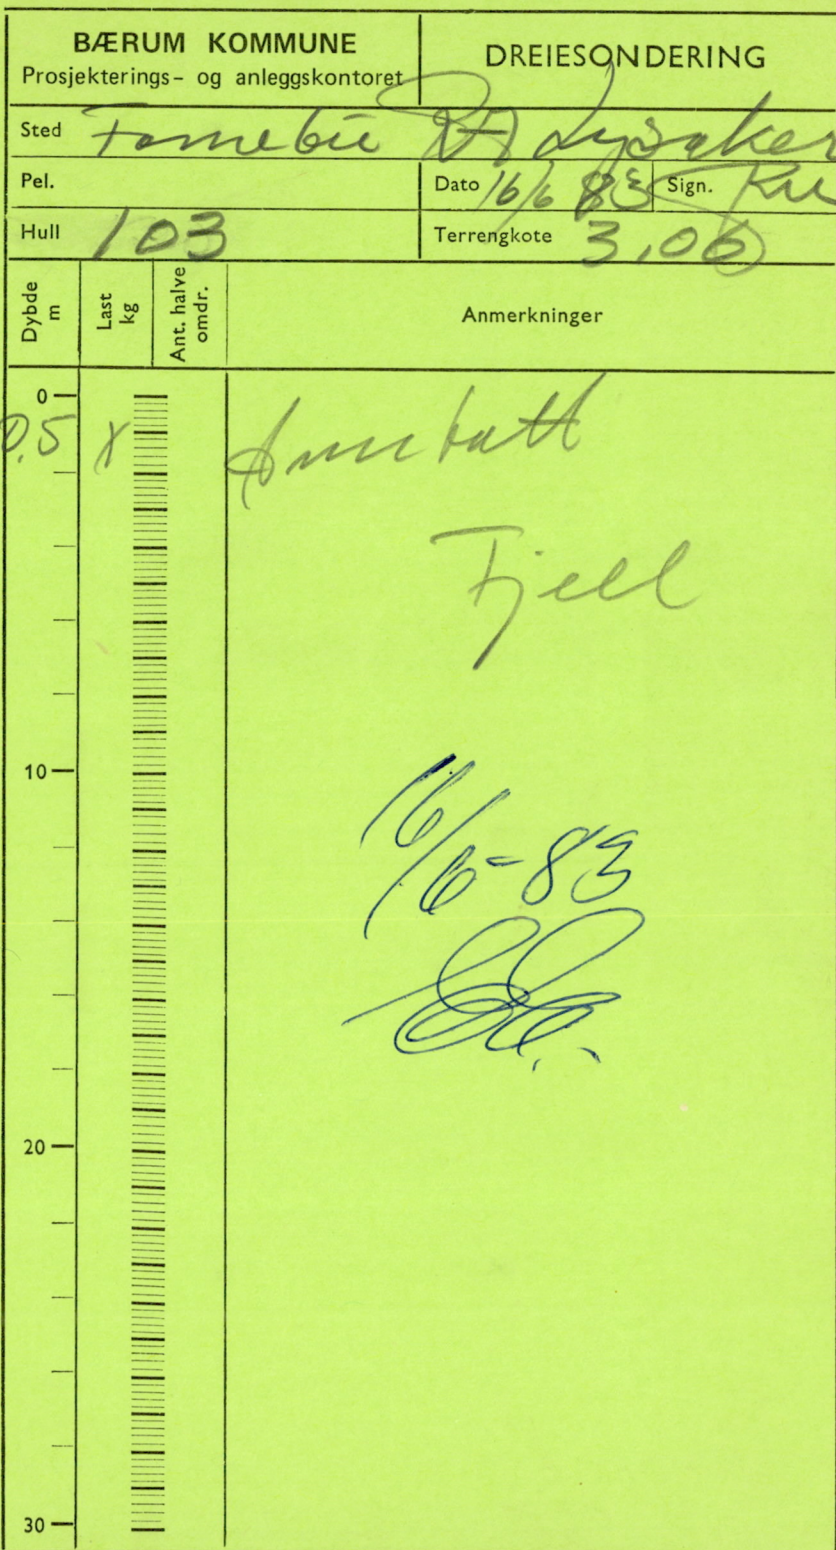 BÆRUM KOMMUNE
Prosjekterings- og anleggskontoret
DREIESONDERING
Sted Fornebu Lysaker
Pel.
Dato 16/6 83 Sign.
Hull 103
Terrengkote 3,06
Dybde m
Last kg
Ant. halve omdr.
Anmerkninger
0
0,5 x
Fjell
10
16/6-83
20
30